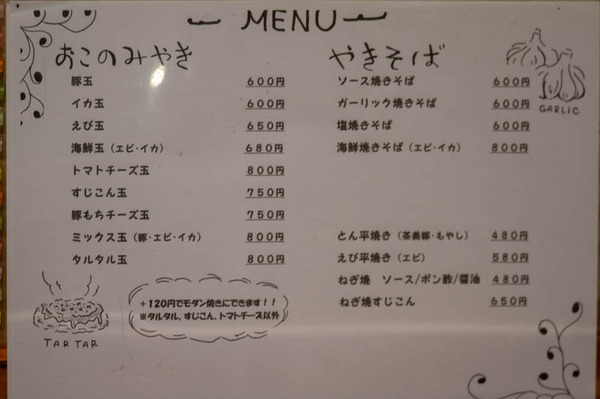 MENU
おこのみやき
豚玉 600円
イカ玉 600円
えび玉 650円
海鮮玉（エビ・イカ） 680円
トマトチーズ玉 800円
すじこん玉 750円
豚もちチーズ玉 750円
ミックス玉（豚・エビ・イカ） 800円
タルタル玉 800円
＋120円でモダン焼きにできます！！
※タルタル、すじこん、トマトチーズ以外
TARTAR
やきそば
ソース焼きそば 600円
ガーリック焼きそば 600円
塩焼きそば 600円
海鮮焼きそば（エビ・イカ） 800円
GARLIC
とん平焼き（茶美豚・もやし） 480円
えび平焼き（エビ） 580円
ねぎ焼 ソース/ポン酢/醤油 480円
ねぎ焼すじこん 650円